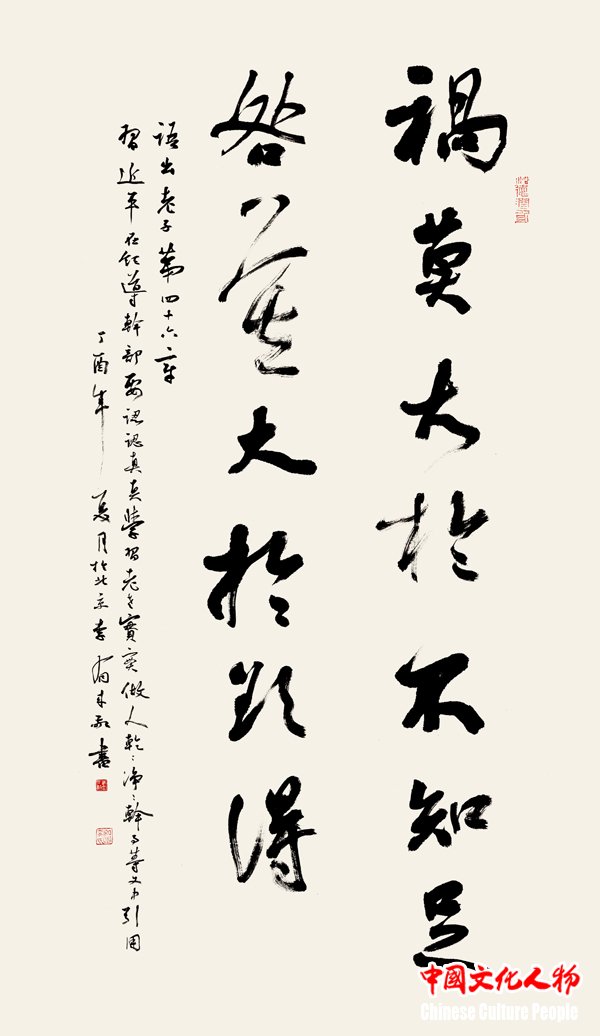 禍莫大於不知足
咎莫大於欲得
語出老子第四十六章
習近平在領導幹部要認認真真學習老老實實做人乾乾淨淨幹事等文中引用
丁酉年夏月於北京李 書
中國文化人物
Chinese Culture People